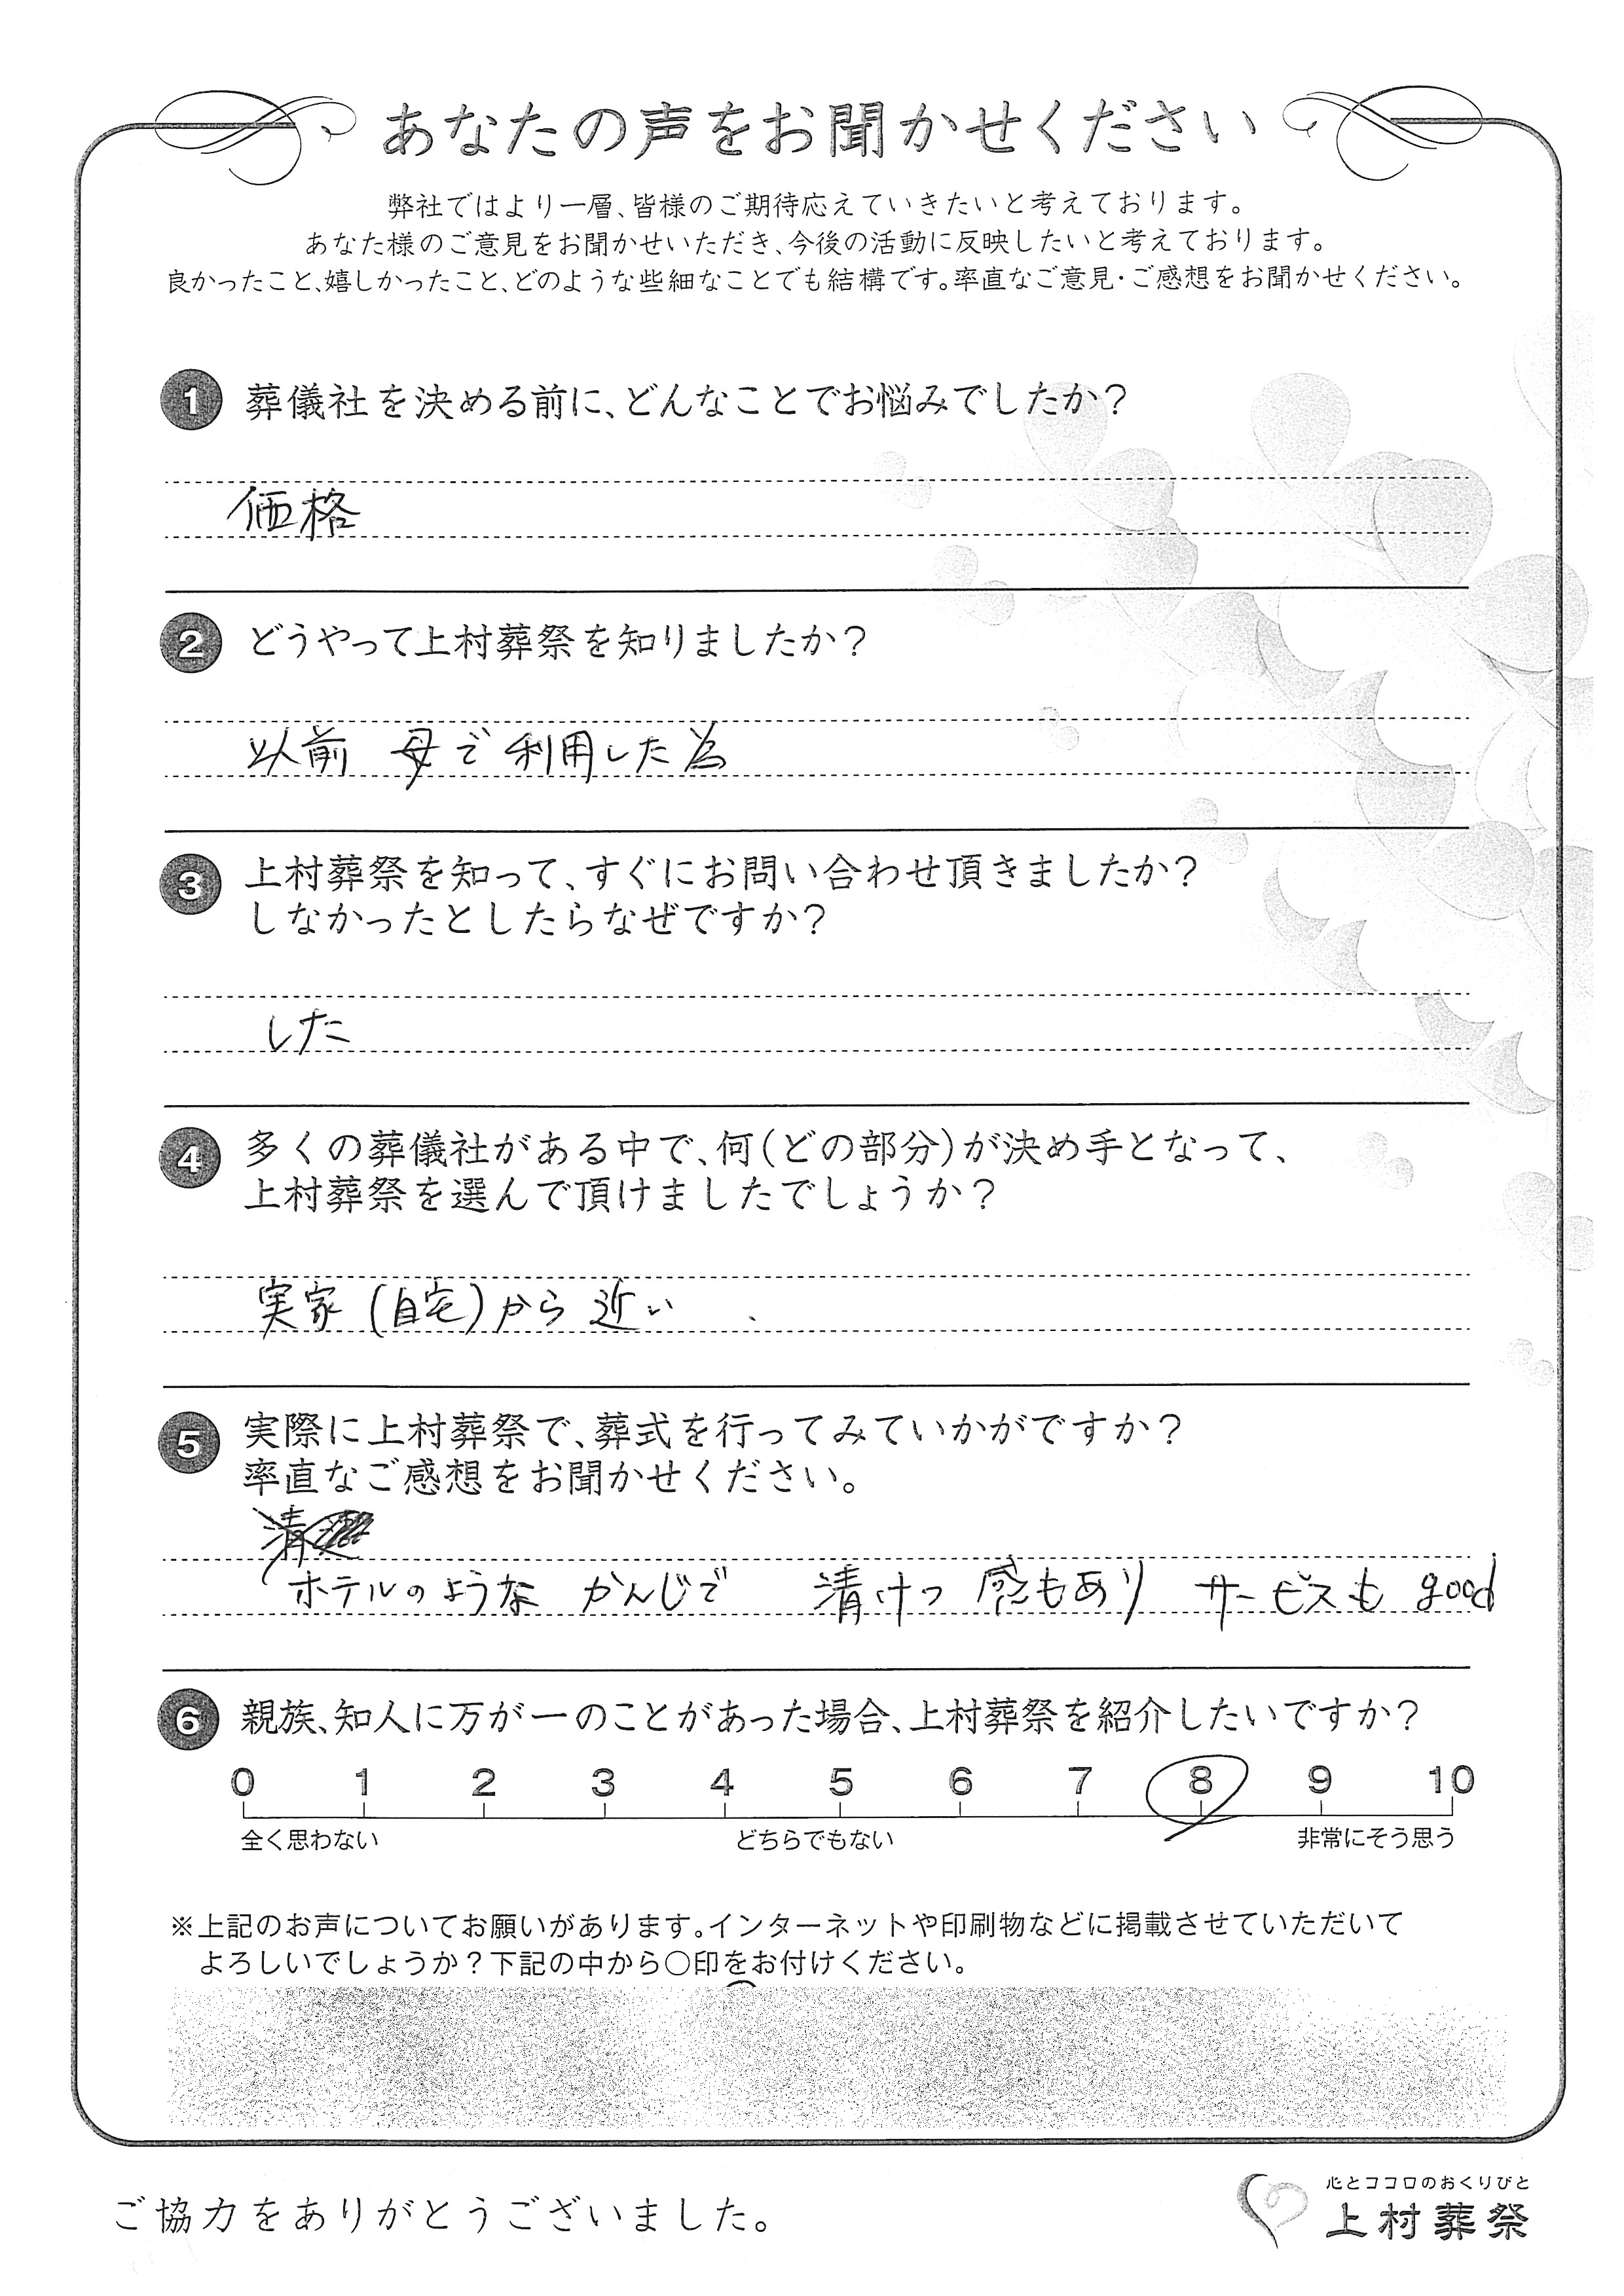 あなたの声をお聞かせください
弊社ではより一層、皆様のご期待応えていきたいと考えております。
あなた様のご意見をお聞かせいただき、今後の活動に反映したいと考えております。
良かったこと、嬉しかったこと、どのような些細なことでも結構です。率直なご意見・ご感想をお聞かせください。
1 葬儀社を決める前に、どんなことでお悩みでしたか?
価格
2 どうやって上村葬祭を知りましたか?
以前 母で利用した為
3 上村葬祭を知って、すぐにお問い合わせ頂きましたか?
しなかったとしたらなぜですか?
した
4 多くの葬儀社がある中で、何(どの部分)が決め手となって、
上村葬祭を選んで頂けましたでしょうか?
実家(自宅)から近い
5 実際に上村葬祭で、葬式を行ってみていかがですか?
率直なご感想をお聞かせください。
清
ホテルのような かんじで 清けつ感もあり サービスも good
6 親族、知人に万が一のことがあった場合、上村葬祭を紹介したいですか?
0 1 2 3 4 5 6 7 8 9 10
全く思わない どちらでもない 非常にそう思う
※上記のお声についてお願いがあります。インターネットや印刷物などに掲載させていただいて
よろしいでしょうか?下記の中から○印をお付けください。
ご協力をありがとうございました。
心とココロのおくりびと
上村葬祭